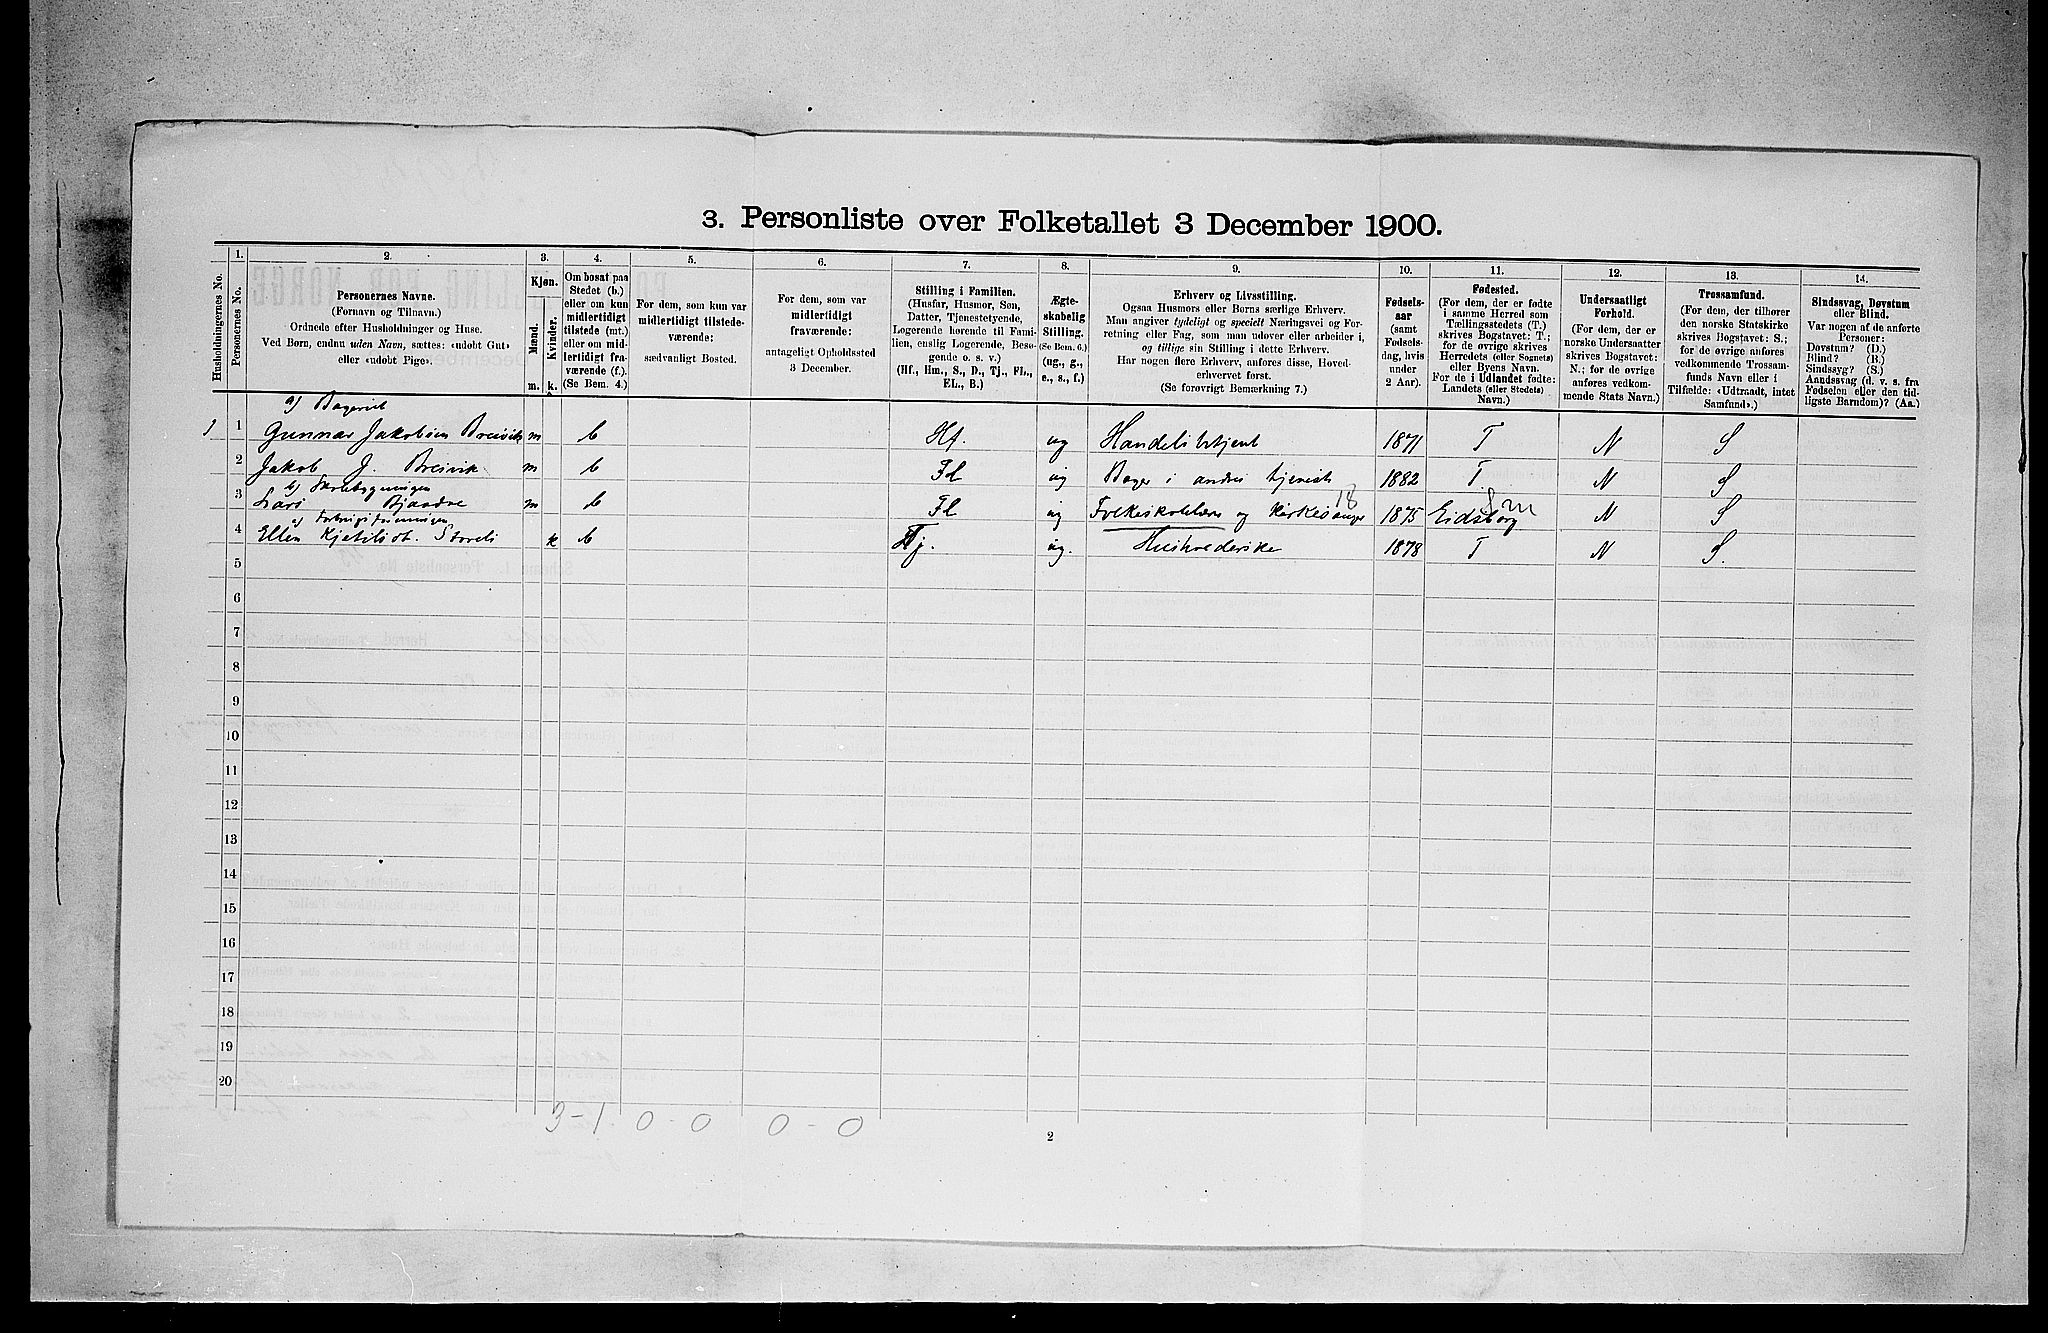 3. Personliste over Folketallet 3 December 1900.
Husholdningernes No.
1.
Personernes No.
2.
Personernes Navne.
(Fornavn og Tilnavn.)
Ordnede efter Husholdninger og Huse.
Ved Børn, endnu uden Navn, sættes: «udøbt Gut»
eller «udøbt Pige».
3.
Kjøn.
Mænd.
Kvinder.
m.
k.
4.
Om bosat paa
Stedet (b.)
eller om kun
midlertidigt
tilstede (mt.)
eller om mid-
lertidigt fra-
værende (f.).
(Se Bem. 4.)
5.
For dem, som kun var
midlertidigt tilstede-
værende:
sædvanligt Bosted.
6.
For dem, som var
midlertidigt
fraværende:
antageligt Opholdssted
3 December.
7.
Stilling i Familien.
(Husfar, Husmor, Søn,
Datter, Tjenestetyende,
Logerende hørende til Fami-
lien, enslig Logerende, Besø-
gende o. s. v.)
(Hf., Hm., S., D., Tj., FL.,
EL., B.)
8.
Ægte-
skabelig
Stilling.
(Se Bem. 6.)
(ug., g.,
e., s., f.)
9.
Erhverv og Livsstilling.
Ogsaa Husmors eller Børns særlige Erhverv.
Man angiver tydeligt og specielt Næringsvei og For-
retning eller Fag, som man udøver eller arbeider i,
og tillige sin Stilling i dette Erhverv.
Har nogen flere Erhverv, anføres disse, Hoved-
erhvervet først.
(Se forøvrigt Bemærkning 7.)
10.
Fødsels-
aar
(samt
Fødsels-
dag, hvis
under
2 Aar).
11.
Fødested.
(For dem, der er fødte
i samme Herred som
Tællingsstedets (T.)
skrives Bogstavet: T.;
for de øvrige skrives
Herredets (eller Sognets)
eller Byens Navn.
For de i Udlandet fødte:
Landets (eller Stedets)
Navn.)
12.
Undersaatligt
Forhold.
(For dem, der er
norske Undersaatter
skrives Bogstavet:
N.; for de øvrige
anføres vedkom-
mende Stats Navn.)
13.
Trossamfund.
(For dem, der tilhører
den norske Statskirke
skrives Bogstavet: S.;
for de øvrige anføres
vedkommende Trossam-
funds Navn eller i
Tilfælde: «Udtraadt, intet
Samfund».)
14.
Sindssvag, Døvstum
eller Blind.
Var nogen af de anførte
Personer:
Døvstum? (D.)
Blind? (B.)
Sindssyg? (S.)
Aandssvag (d. v. s. fra
Fødselen eller den tid-
ligste Barndom)? (Aa.)
a) Bageriet
1 1 Gunnar Jakobsen Breivik m b Hf. ug Handelsbetjent 1871 T N S
2 Jakob J. Breivik m b Fl ug Bager i andres tjeneste 1882 T. N S
b) Skolebygningen
3 Lars Bjaadne m b Fl ug Folkeskolelærer og Kirkesanger 18 1875 Eidsborg N S
c) Forbrugsforeningen
4 Ellen Kjetilsdt. k b Tj. ug. 1878 T N S.
5
6
7
8
9
10
11
12
13
14
15
16
17
18
19
20
3-1 0-0 0-0
2